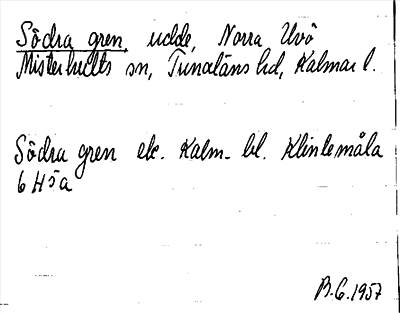 Södra gren, udde, Norra Uvö
Misterhults sn, Tunaläns hd, Kalmar l.
Södra gren ek. Kalm. bl. Klintemåla
6 H 5 a
B. G. 1957